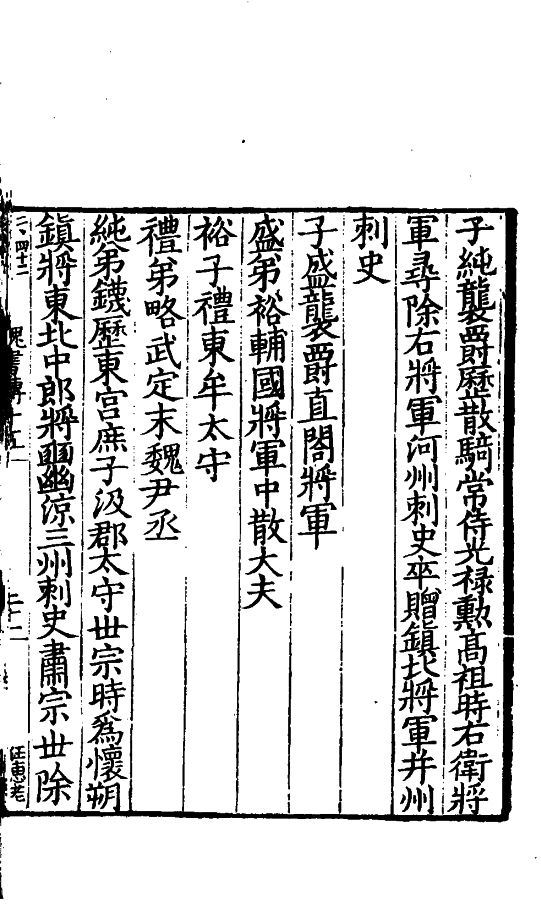 子純襲爵歷散騎常侍光禄勲髙祖時右衛將
軍尋除右將軍河州刺史卒贈鎮北將軍并州
刺史
子盛襲爵直閤將軍
盛弟裕輔國將軍中散大夫
裕子禮東牟太守
禮弟略武定末魏尹丞
純弟鑖歷東宫庶子汲郡太守世宗時爲懷朔
鎮將東北中郎將豳幽涼三州刺史肅宗世除
魏書傳十五 二十二